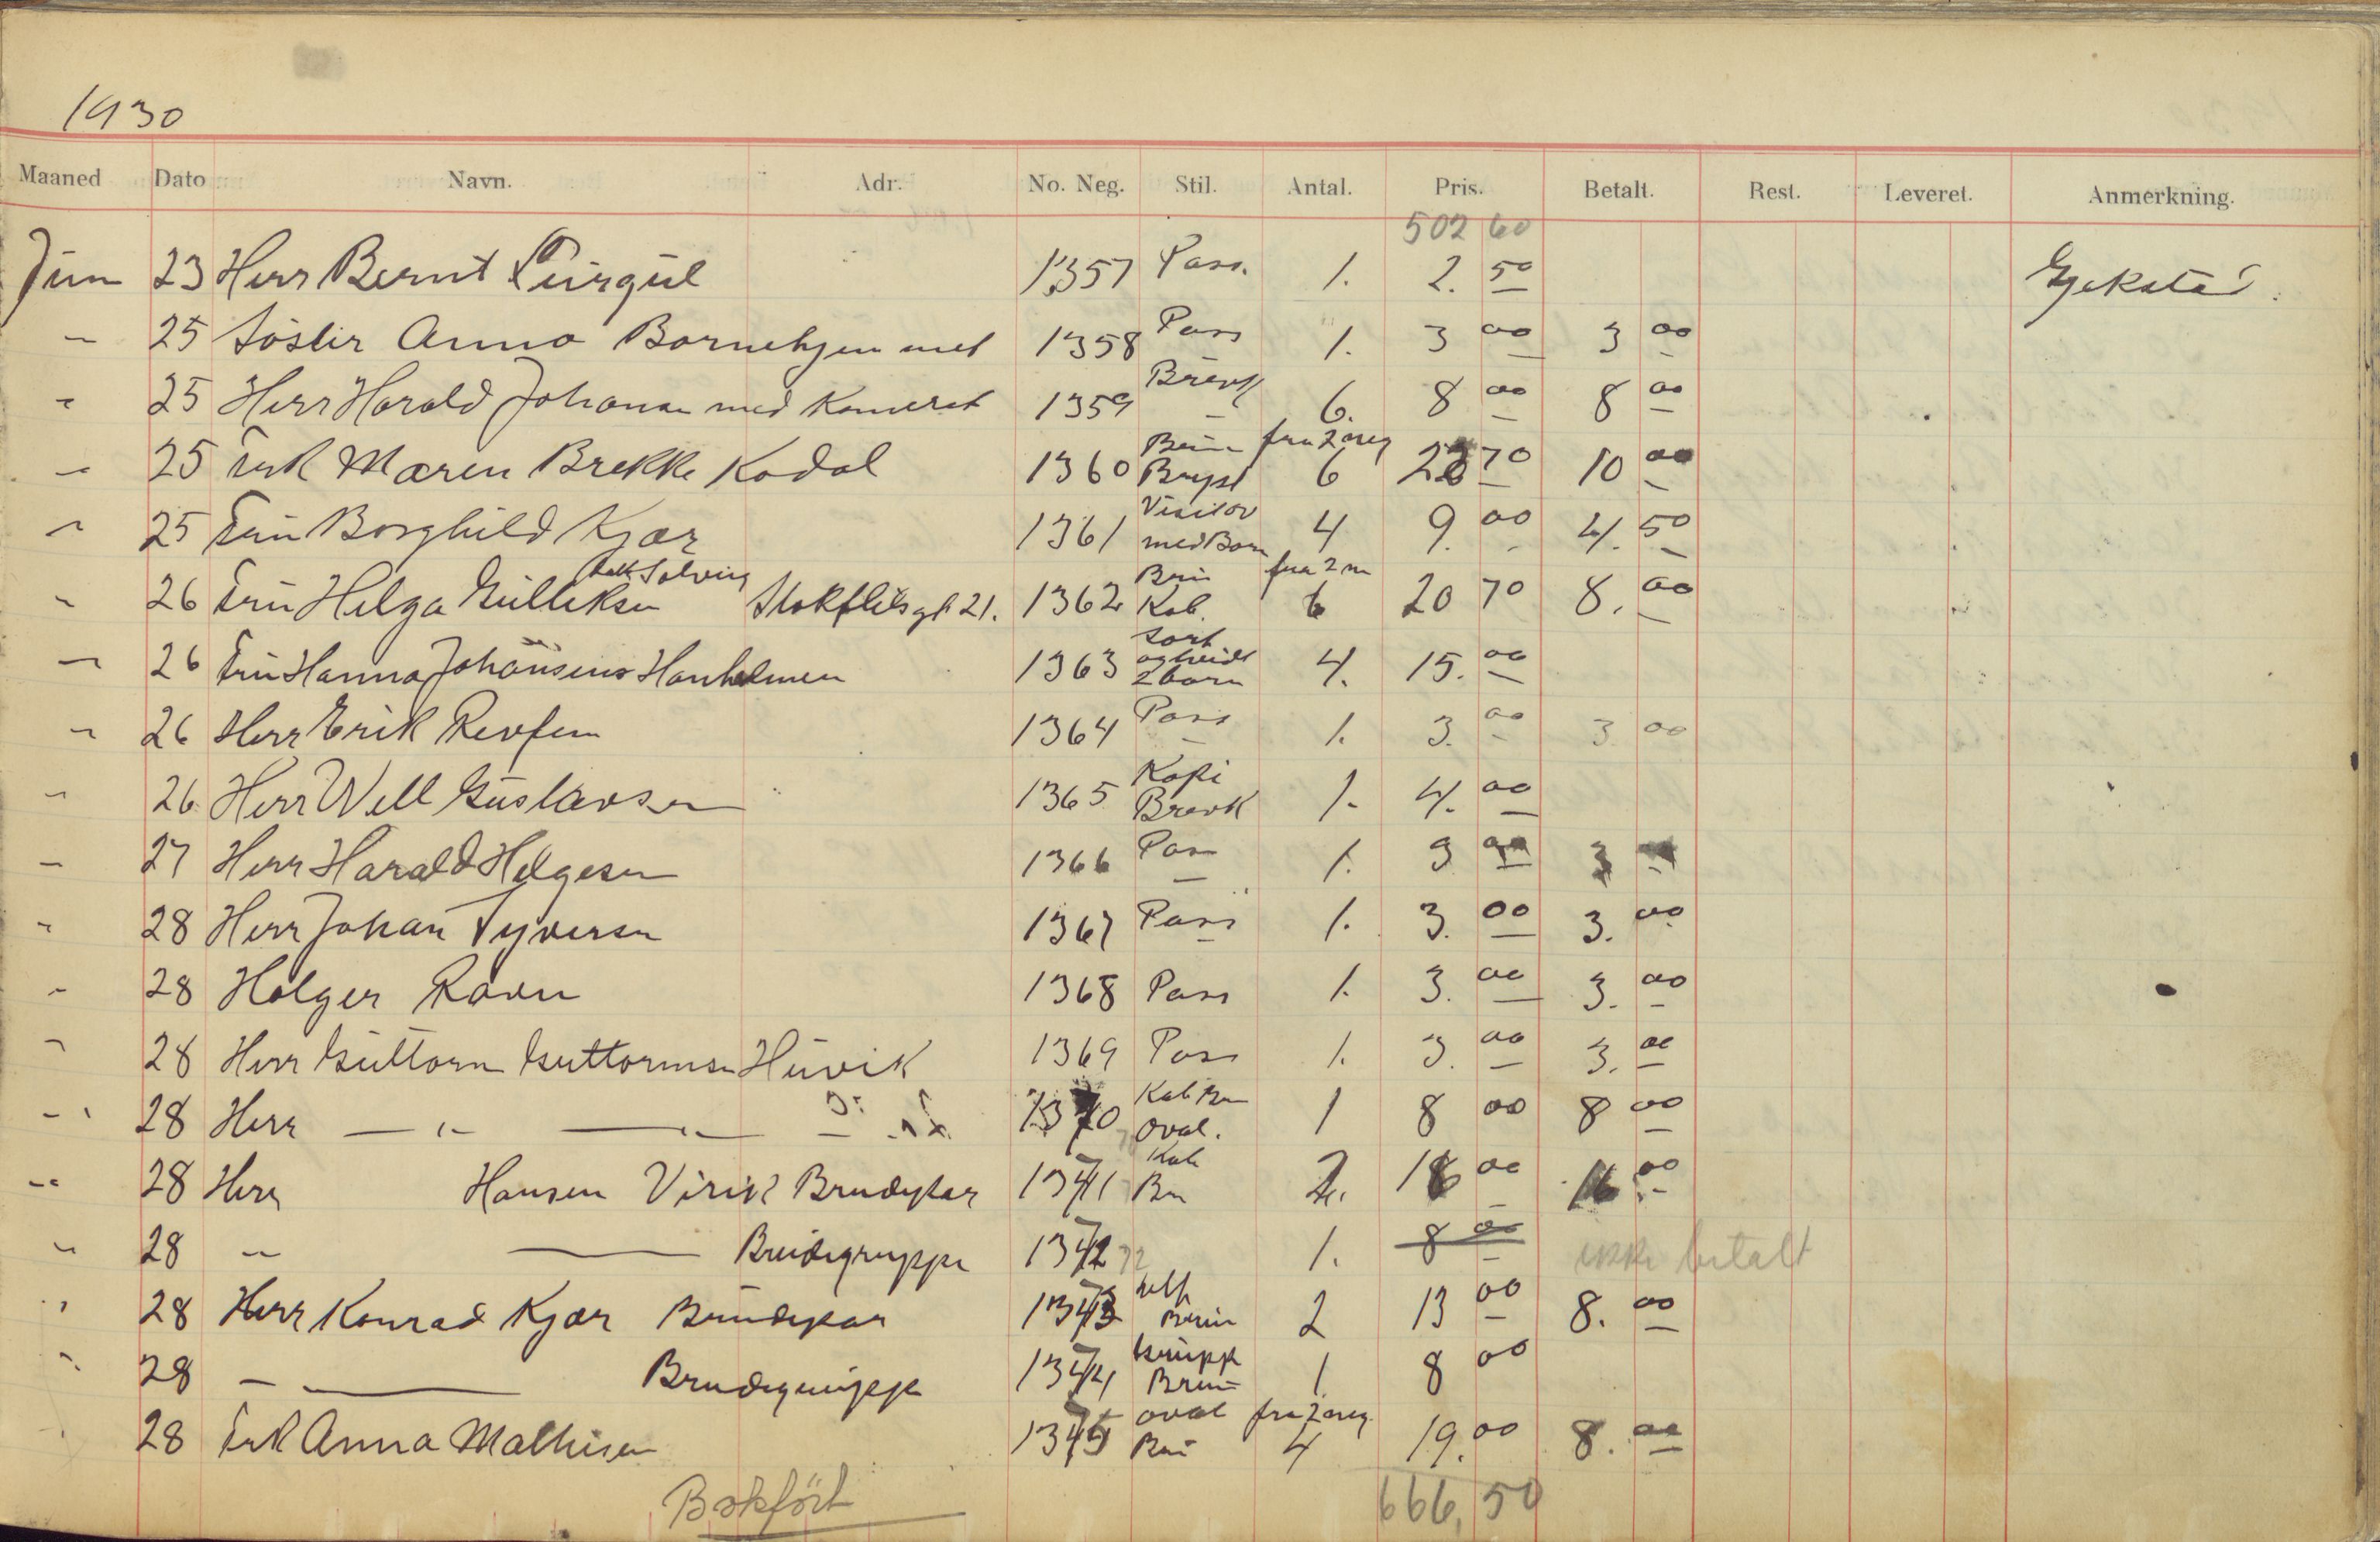 1930
Maaned Dato Navn. Adr. No. Neg. Stil. Antal. Pris. Betalt. Rest. Leveret. Anmerkning.
502 60
Juni 23 Herr Bernt 1357 Pass. 1. 2. 50
" 25 Søster Anna 1358 Pass 1. 3 00 3 00
" 25 Herr Harald Johansen med Kamerat 1359 Brevk 6. 8 00 8 00
" 25 Frk Maren Brekke Kodal 1360 Brun Bryst fra 2 neg 6 70 10 00
" 25 Fru Borghild Kjær 1361 Visit ov med Barn 4 9. 00 4. 50
" 26 Fru Helga Gulliksen Solveig 21. 1362 Brun Kab. fra 2 n 6 20 70 8. 00
" 26 Fru Hanna Johansens 1363 Sort og hvidt 2 barn 4. 15. 00
" 26 Herr Erik 1364 Pass 1. 3. 00 3 00
" 26 Herr Gustavsen 1365 Kopi Brevk 1. 4. 00
— 27 Herr Harald Helgesen 1366 Pass 1. 3 00 3
" 28 Herr Johan Syversen 1367 Pass 1. 3. 00 3. 00
" 28 Holger Ravn 1368 Pass 1. 3. 00 3. 00
" 28 Herr Guttorm Guttormsen Huvik 1369 Pass 1. 3. 00 3. 00
" 28 Herr — " — 1370 Kab Brun Oval. 1 8 00 8 00
" 28 Herr Hansen Virik Brudepar 1371 Kab Brun 2. 16 00 16 00
" 28 " — Brudegruppe 1372 72 1. 8 00 ikke betalt
" 28 Herr Konrad Kjær Brudepar 1373 Brun 2 13 00 8. 00
" 28 — Brudegruppe 1374 Gruppe Brun 1 8 00
28 Frk Anna Mathisen 1375 Oval Brun fra 2 neg. 4 19. 00 8. 00
Bokført 666,50